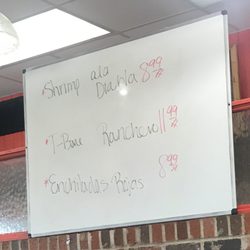 *Shrimp ala
Diabla 8.99
*T-Bone Ranchero 11.99
8.99
*Enchiladas Rojas